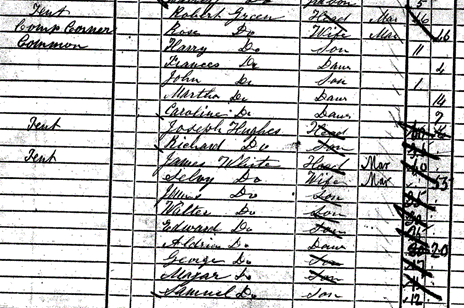 5
Tent Robert Green Head Mar 46
Comp Corner Rose Do Wife Mar 16
Common Harry Do Son 11
Frances Do Daur 4
John Do Son 1
Martha Do Daur 14
Caroline Do Daur 7
Tent Joseph Hughes Head
Richard Do Son
Tent James White Head Mar 60
Selby Do Wife Mar 55
James Do Son
Walter Do Son
Edward Do Son
Do Daur 20
George Do Son
Do Son
Samuel Do Son 12